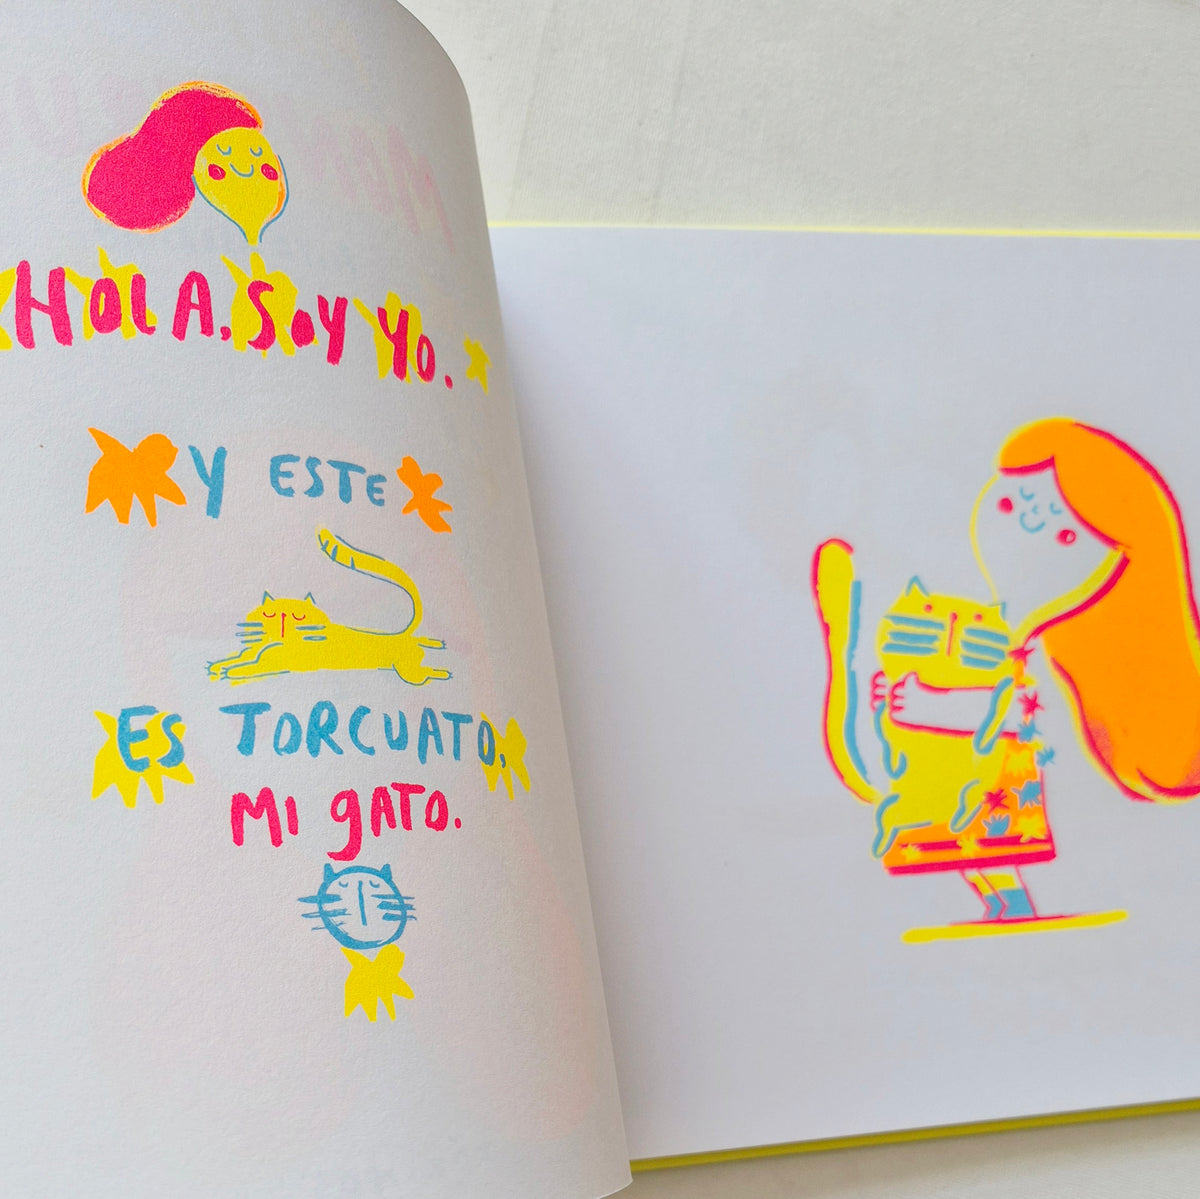 HOLA, SOY YO.
Y ESTE
ES TORCUATO,
MI gATO.